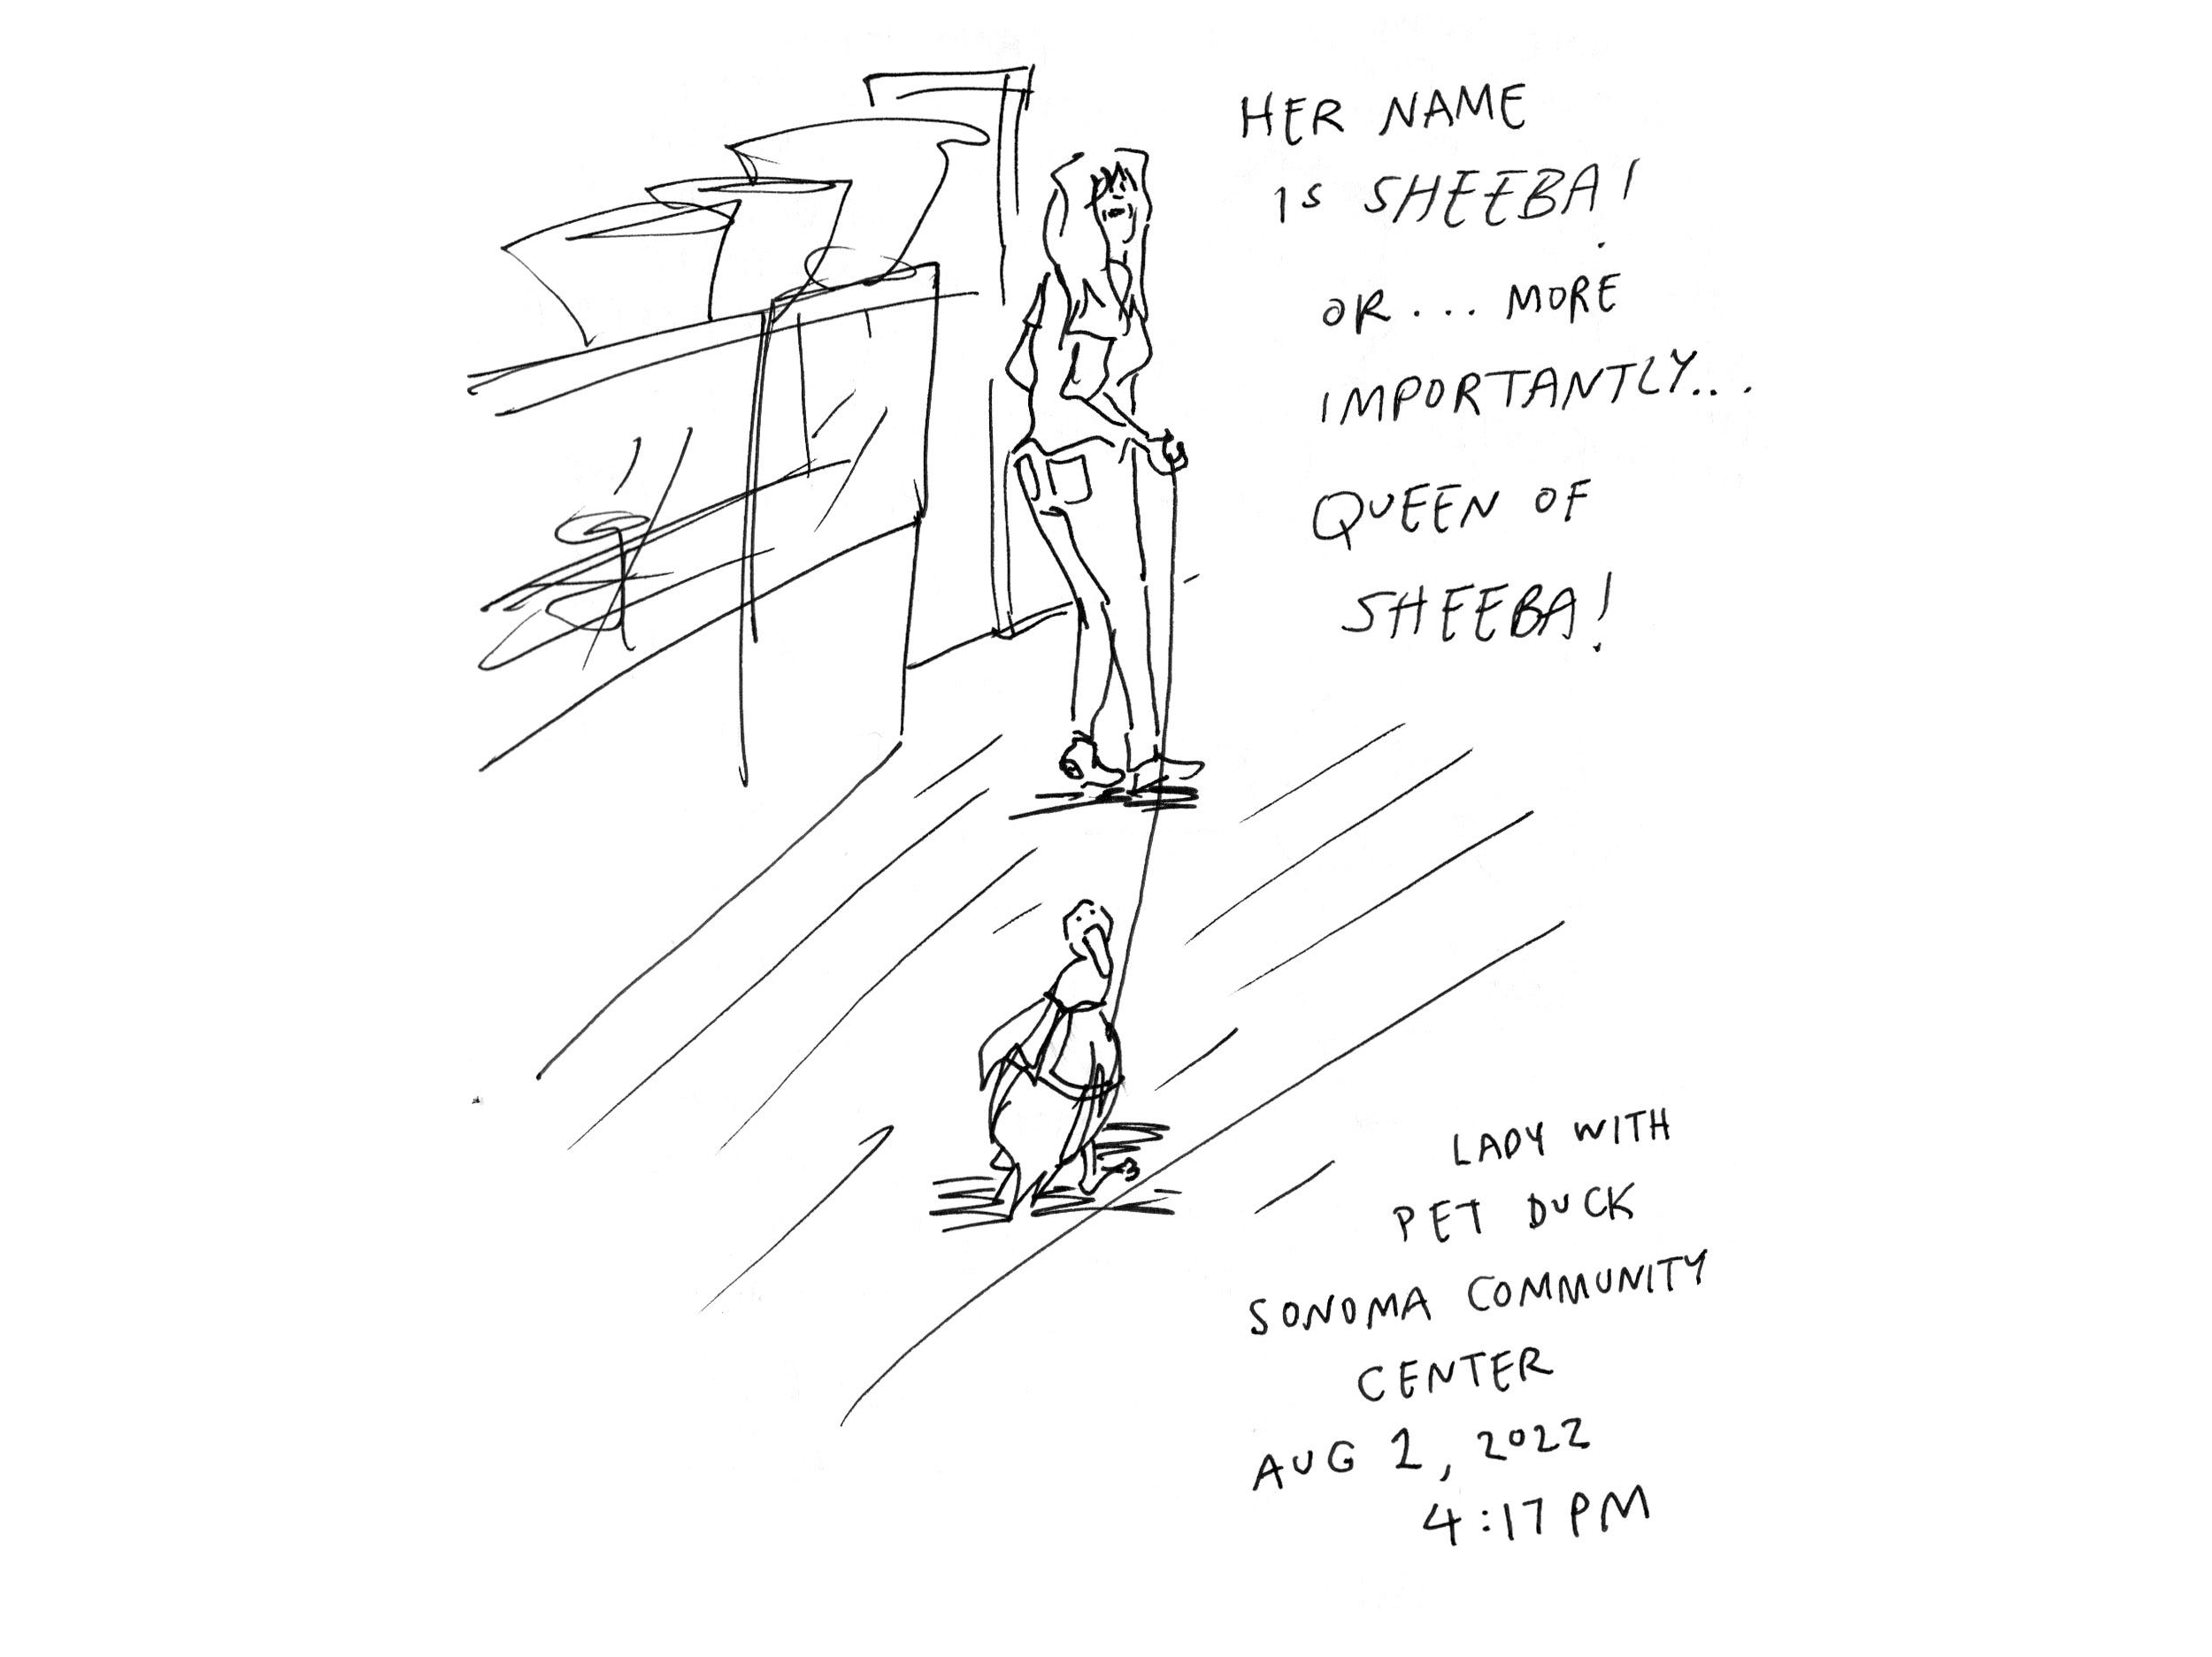 HER NAME
IS SHEEBA!
OR... MORE
IMPORTANTLY...
QUEEN OF
SHEEBA!
LADY WITH
PET DUCK
SONOMA COMMUNITY
CENTER
AUG 2, 2022
4:17 PM